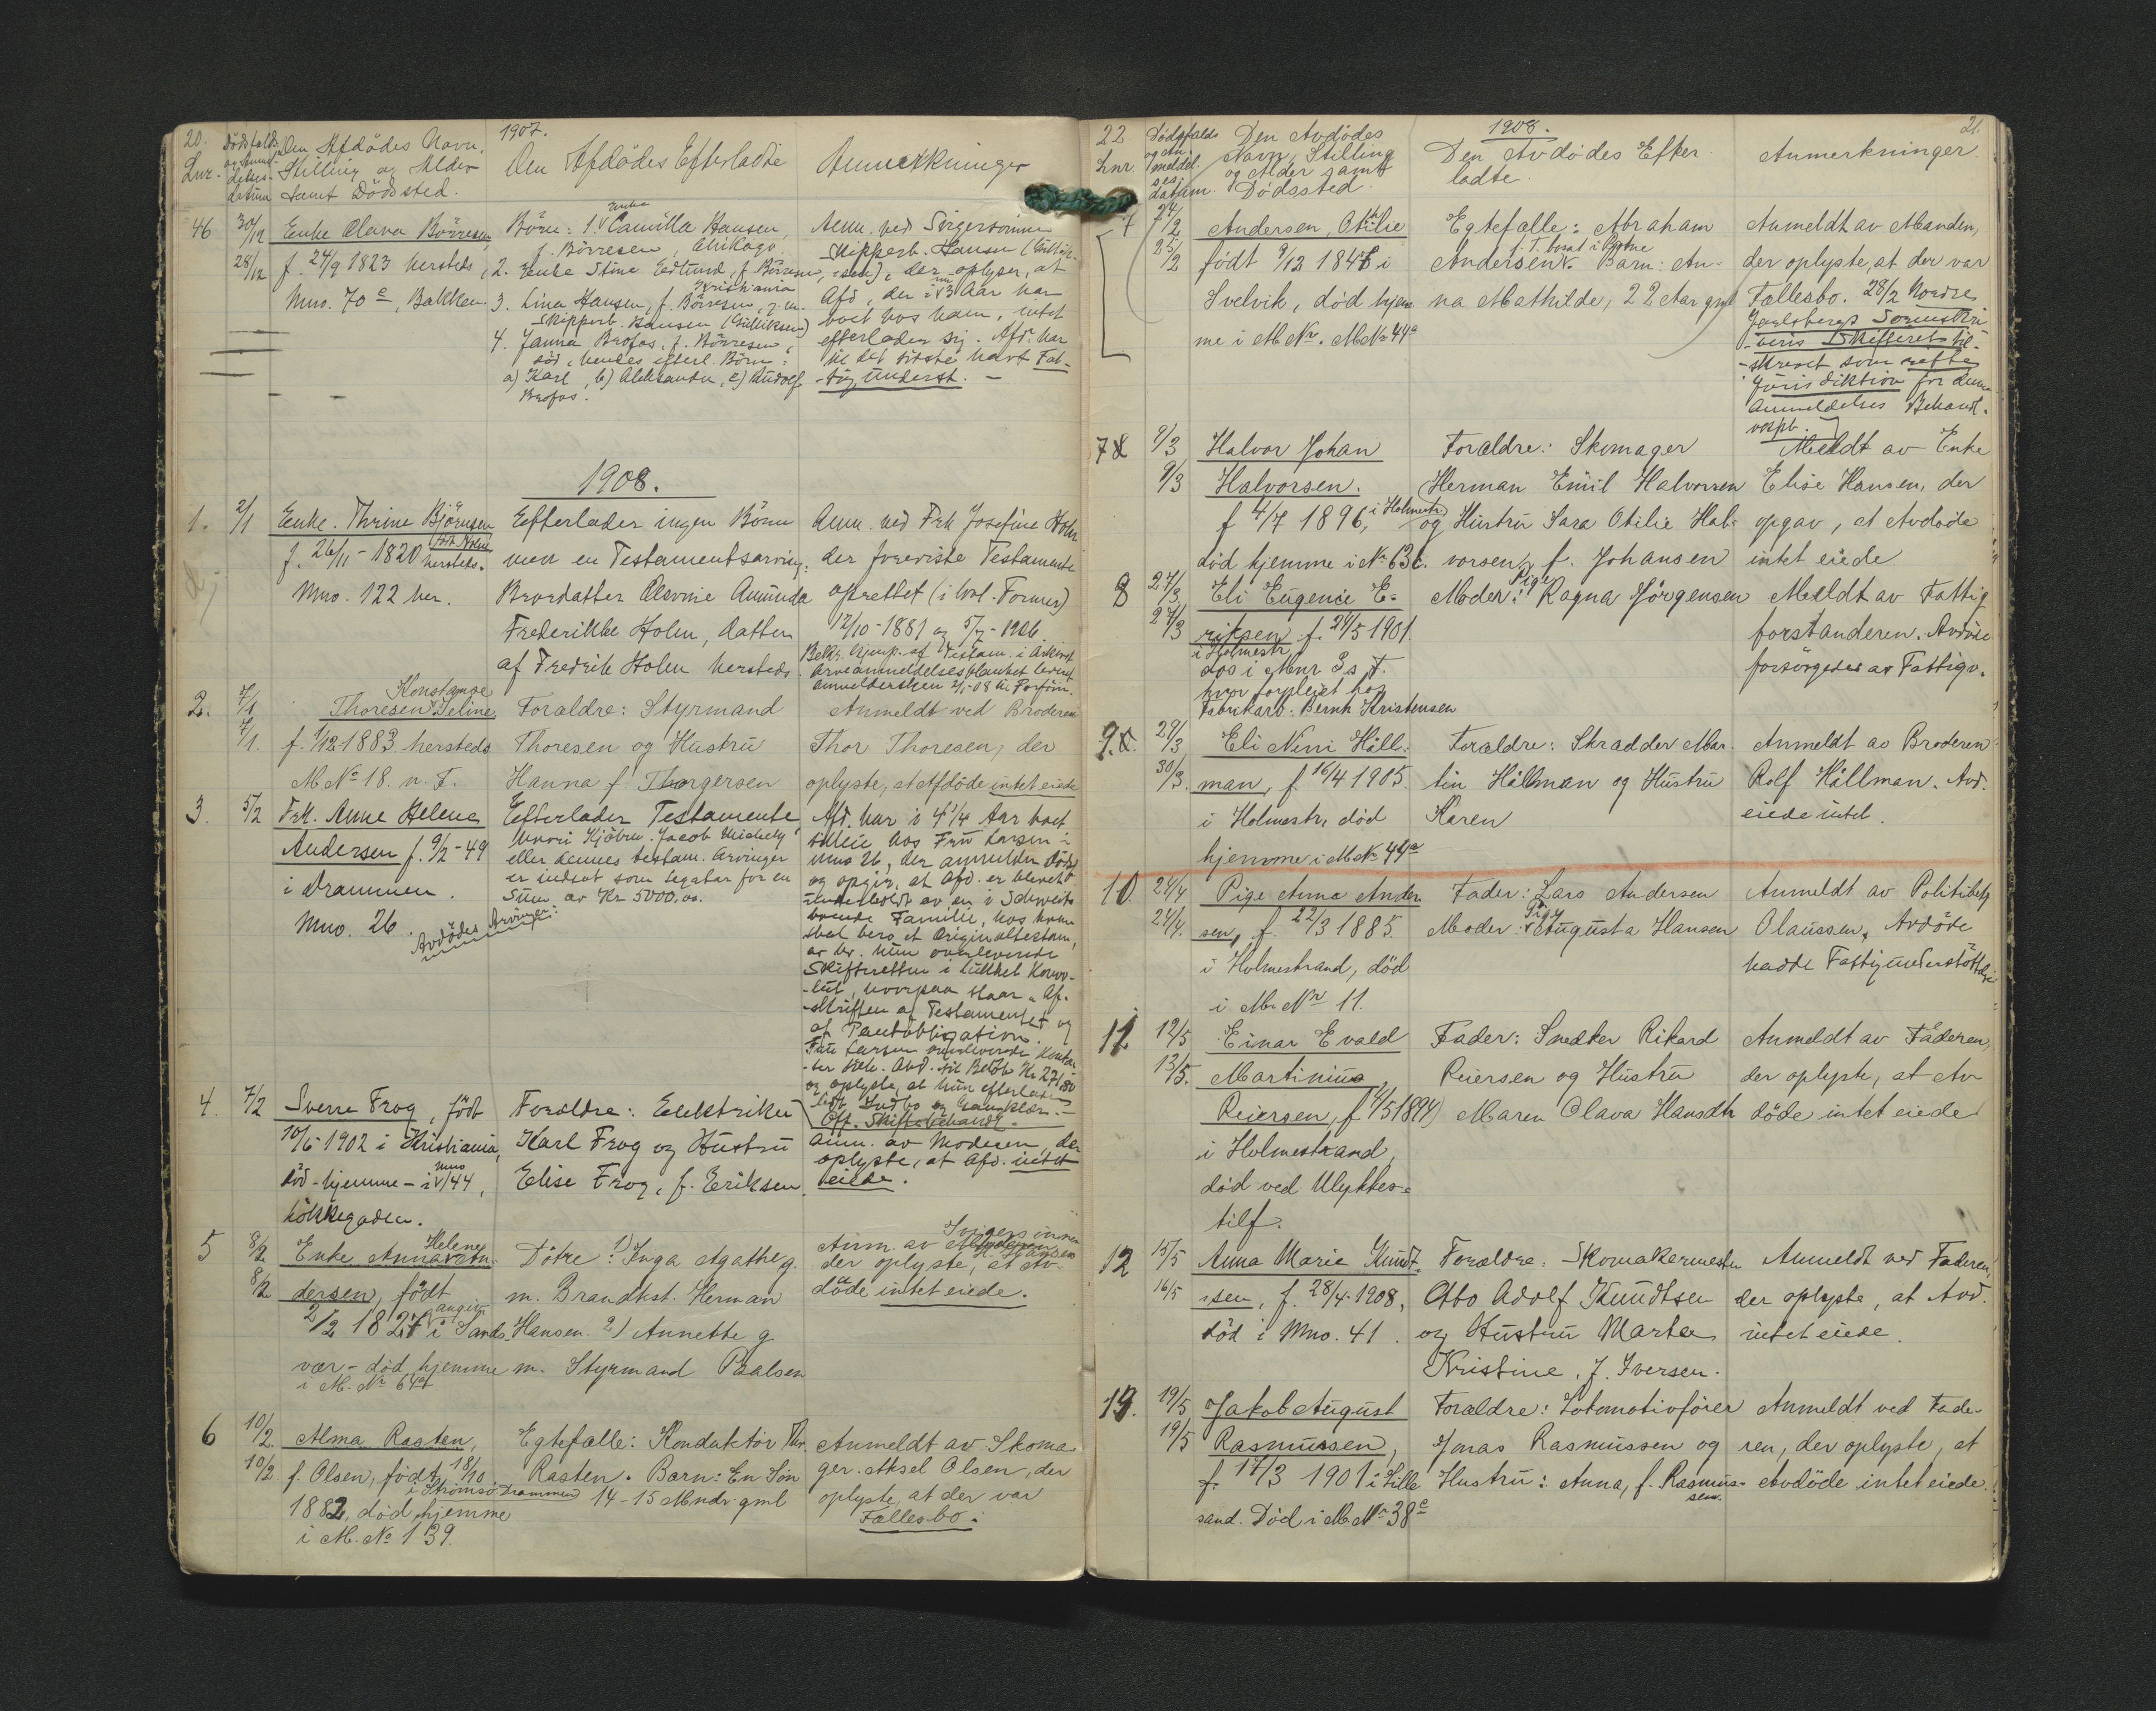 20.
1907.
Lnr.
Dödsfalds og Anmeldelses datum
Den Afdödes Navn,
Stilling og Alder
samt Dödssted.
Den Afdödes Efterladte
Anmerkninger
46
30/12
28/12
Enke Olava Börresen
f. 24/9 1823 hersteds,
Mno. 70 c, Bakken.
Börn: 1. Enke Camilla Hansen,
f. Börresen, Chikago
2. Enke Stine Edlund, f. Börresen,
Kristiania
3. Lina Hansen, f. Börresen, g.m.
Skipperb. Hansen (Gulliksen)
4. Janna Brofos, f. Börresen,
död, hendes efterl. Börn:
a) Karl, b) Aleksander, c) Rudolf
Brofos.
Anm. ved Svigersönnen
Skipperb. Hansen (Gullik-
sen), der oplyser, at
Afd., der i 3 Aar har
boet hos ham, intet
efterlader sig. Afd. har
til det sidste havt Fat-
tigunderst. -
1908.
1.
2/1
Enke. Thrine Björnsen
født Holm
f. 26/11 - 1820 hersteds.
Mno. 122 her.
Efterlader ingen Börn
men en Testamentsarving:
Brordatter Olavine Amunda
Frederikke Holm, datter
af Fredrik Holm hersteds
Anm. ved Frk Josefine Holm
der foreviste Testamente
oprettet (i lovl. Former)
12/10 - 1881 og 5/7 - 1906.
Bekr. Gjenp. af Testam. i Arkivet
Arveanmeldelsesblanket leveret
Anmeldersken 2/1-08 til
2.
7/1
7/1.
Konstanse
Thoresen Seline
f. 1/12 1883 hersteds
M. No 18. n. F.
Forældre: Styrmand
Thoresen og Hustru
Hanna f Thorgersen
Anmeldt ved Broderen
Thor Thoresen, der
oplyste, at Afdöde intet eiede
3.
5/2
Frk. Anne Helene
Andersen f. 9/2 - 49
i Drammen.
Mno. 26.
Avdödes Arvinger:
Efterlader Testamente
hvori Kjöbm. Jacob Michely
eller dennes testam. Arvinger
er indsat som legatar for en
Sum av Kr 5000,00.
Afd. har i 4 1/4 Aar boet
tilleie hos Fru Larsen i
Mno 26, der anmelder Döds
og opgir, at Afd. er blevet
underholdt av en i Schweits
boende Familie, hos hvem
skal bero et Originaltestam,
av hv. hun overleverede
Skifteretten i lukket Konvo-
lut, hvorpaa staar "Af-
skriften af Testamentet og
af Pantobligation.
Fru Larsen overleverede Kontan-
ter til Belöb Kr 27,80
og oplyste, at hun efterlader
lidt Indbo og Gangklær. -
Off. Skiftebehandl.
4.
7/2
Sverre Frog, födt
10/6 1902 i Kristiania,
död - hjemme - i Mno 144,
Lökkegaden.
Forældre: Elektriker
Karl Frog og Hustru
Elise Frog, f. Eriksen.
Anm. av Moderen, der
oplyste, at Afd. intet
eiede.
5
8/2
8/2
Enke Anna Helene An-
dersen, födt
2/2 1827 angiv. i Sands-
vær - död hjemme
i M. No 64a
Dötre: 1) Inga Agathe g.
m. Brandkst. Herman
Hansen. 2) Annette g
m. Styrmand Paalsen
Anm. av Svigersönnen
H. Hansen
der oplyste, at Av-
döde intet eiede.
6
10/2.
10/2
Alma Rasten,
f. Olsen, födt 18/10
i Strömsö Drammen
1882, död hjemme
i M. No 139.
Egtefælle: Konduktör Thr.
Rasten. Barn: En Sön
14-15 Mndr. gml
Anmeldt av Skoma-
ger Aksel Olsen, der
oplyste, at der var
Fællesbo.
22
1908.
21.
Lnr
Dödsfalds og An-
meldel-
ses
datum.
Den Avdödes
Navn, Stilling
og Alder samt
Dödssted.
Den Avdödes Efter-
ladte.
Anmerkninger.
7
24/2
25/2
Andersen, Otilie
födt 9/12 1846 i
Svelvik, död hjem
me i M. No. M No 44a
Egtefælle: Abraham
Andersen. Barn: An-
na Mathilde, 22 Aar gml
Anmeldt av Manden,
der oplyste, at der var
Fællesbo. 28/2 Nordre
Jarlsbergs Sorenskri-
veris Skifteret til-
skrevet som rette
Jurisdiktion for denne
Anmeldelses Behandl.
vedp.
7 8
9/3
9/3
Halvor Johan
Halvorsen.
f 4/7 1896, i Holmestr.
död hjemme i No 63c.
Forældre: Skomager
Herman Emil Halvorsen
og Hustru Sara Otilie Hal-
vorsen, f. Johansen
Meldt av Enke
Elise Hansen, der
opgav, at Avdöde
intet eiede
8
27/3
27/3
Eli Eugenie E-
riksen f. 24/5 1901.
i Holmestr.
død i Mnr 3 s. F.
hvor forpleiet hos
Fabrikarb. Bernh Kristensen
Moder: Pige Ragna Jörgensen
Meldt av Fattig
forstanderen. Avdöde
forsörgedes av Fattigv.
9.
29/3
30/3.
Eli Nini Häll-
man, f. 16/4 1905.
i Holmestr, död
hjemme i M No 44a
Forældre: Skrædder Mar-
tin Hällman og Hustru
Karen
Anmeldt av Broderen
Rolf Hällman. Avd.
eiede intet.
10.
24/4
24/4.
Pige Anna Ander
sen, f. 22/3 1885.
i Holmestrand, död
i M. No 11.
Fader: Lars Andersen
Moder: Pige Augusta Hansen
Anmeldt av Politibetj
Olaussen. Avdöde
hadde Fattigunderstöttelse
11
12/5
13/5.
Einar Evald
Martinius
Reiersen, f 4/5 1894)
i Holmestrand,
död ved Ulykkes-
tilf.
Fader: Snedker Rikard
Reiersen og Hustru
Maren Olava Hansdtr
Anmeldt av Faderen,
der oplyste, at Av
döde intet eiede
12
15/5
16/5
Anna Marie Knudt-
sen, f. 28/4-1908,
död i Mno. 41.
Forældre: Skomakermester
Otto Adolf Knudtsen
og Hustru Marte
Kristine, f. Iversen.
Anmeldt ved Faderen,
der oplyste, at Avd.
intet eiede.
13.
19/5
19/5
Jakob August
Rasmussen,
f. 17/3 1901 i Lille
sand. Död i M. No 38c
Forældre: Lokomotivförer
Jonas Rasmussen og
Hustru: Anna, f. Rasmus-
sen.
Anmeldt ved Fade-
ren, der oplyste, at
Avdöde intet eiede.